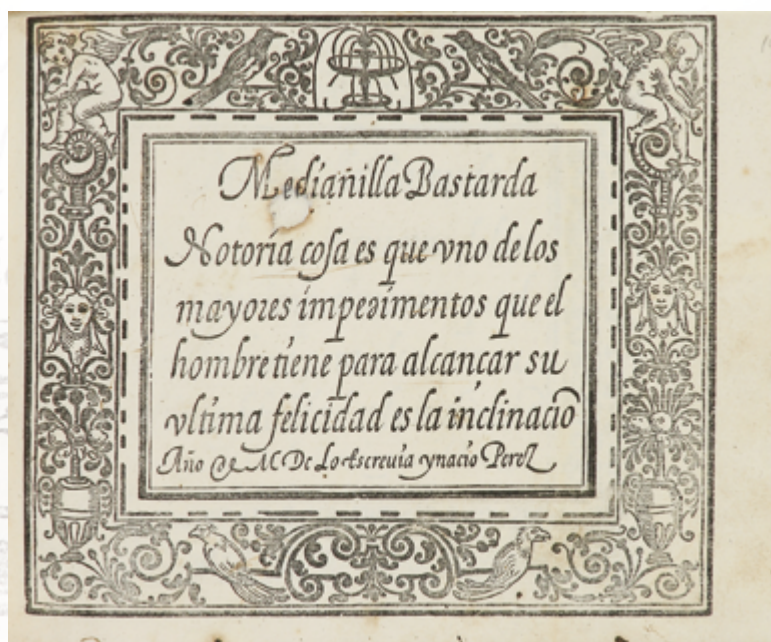 Medianilla Bastarda
Notoria coſa es que vno de los
mayores impedimentos que el
hombre tiene para alcançar su
vltima felicidad es la inclinaciõ
Año de MDc Lo Escrevia ynacio Perez